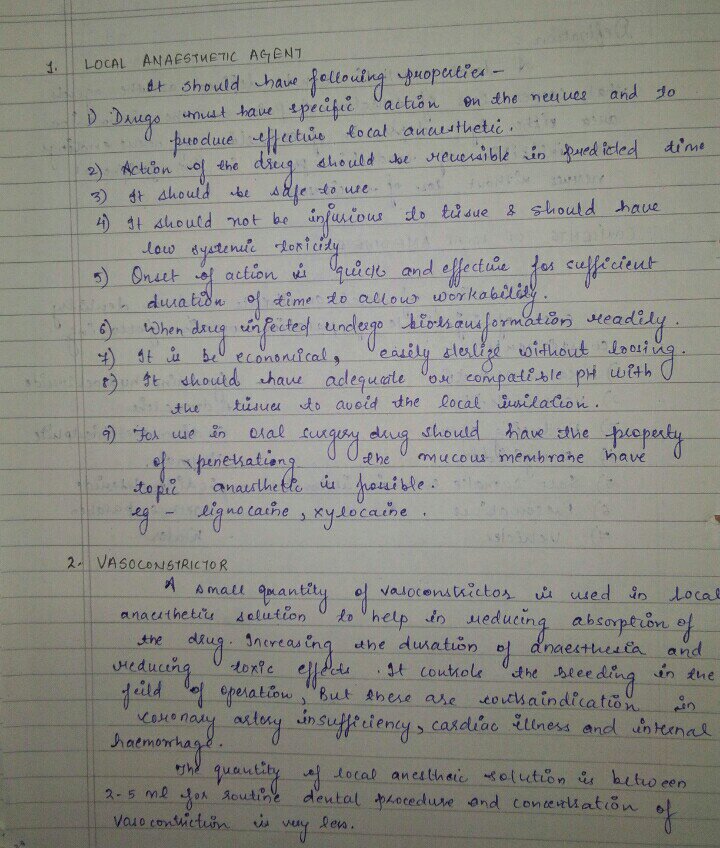 1. LOCAL ANAESTHETIC AGENT
It should have following properties -
1) Drugs must have specific action on the nerves and to
produce effective local anaesthetic.
2) Action of the drug should be reversible in predicted time
3) It should be safe to use.
4) It should not be injurious to tissue & should have
low systemic toxicity
5) Onset of action is quick and effective for sufficient
duration of time to allow workability.
6) When drug injected undergo biotransformation readily.
7) It is be economical, easily sterlize without loosing.
8) It should have adequate or compatible pH with
the tissues to avoid the local irritation.
9) For use in oral surgery drug should have the property
of penetrationg the mucous membrane have
topic anaesthetic is possible.
eg - lignocaine, xylocaine.
2. VASOCONSTRICTOR
A small quantity of vasoconstrictor is used in local
anaesthetic solution to help in reducing absorption of
the drug. Increasing the duration of anaesthesia and
reducing toxic effects. It controls the bleeding in the
feild of operation, But there are contraindication in
coronary artery insufficiency, cardiac illness and internal
haemorrhage.
The quantity of local anestheic solution is between
2-5 ml for routine dental procedure and concentration of
vasoconstriction is very less.